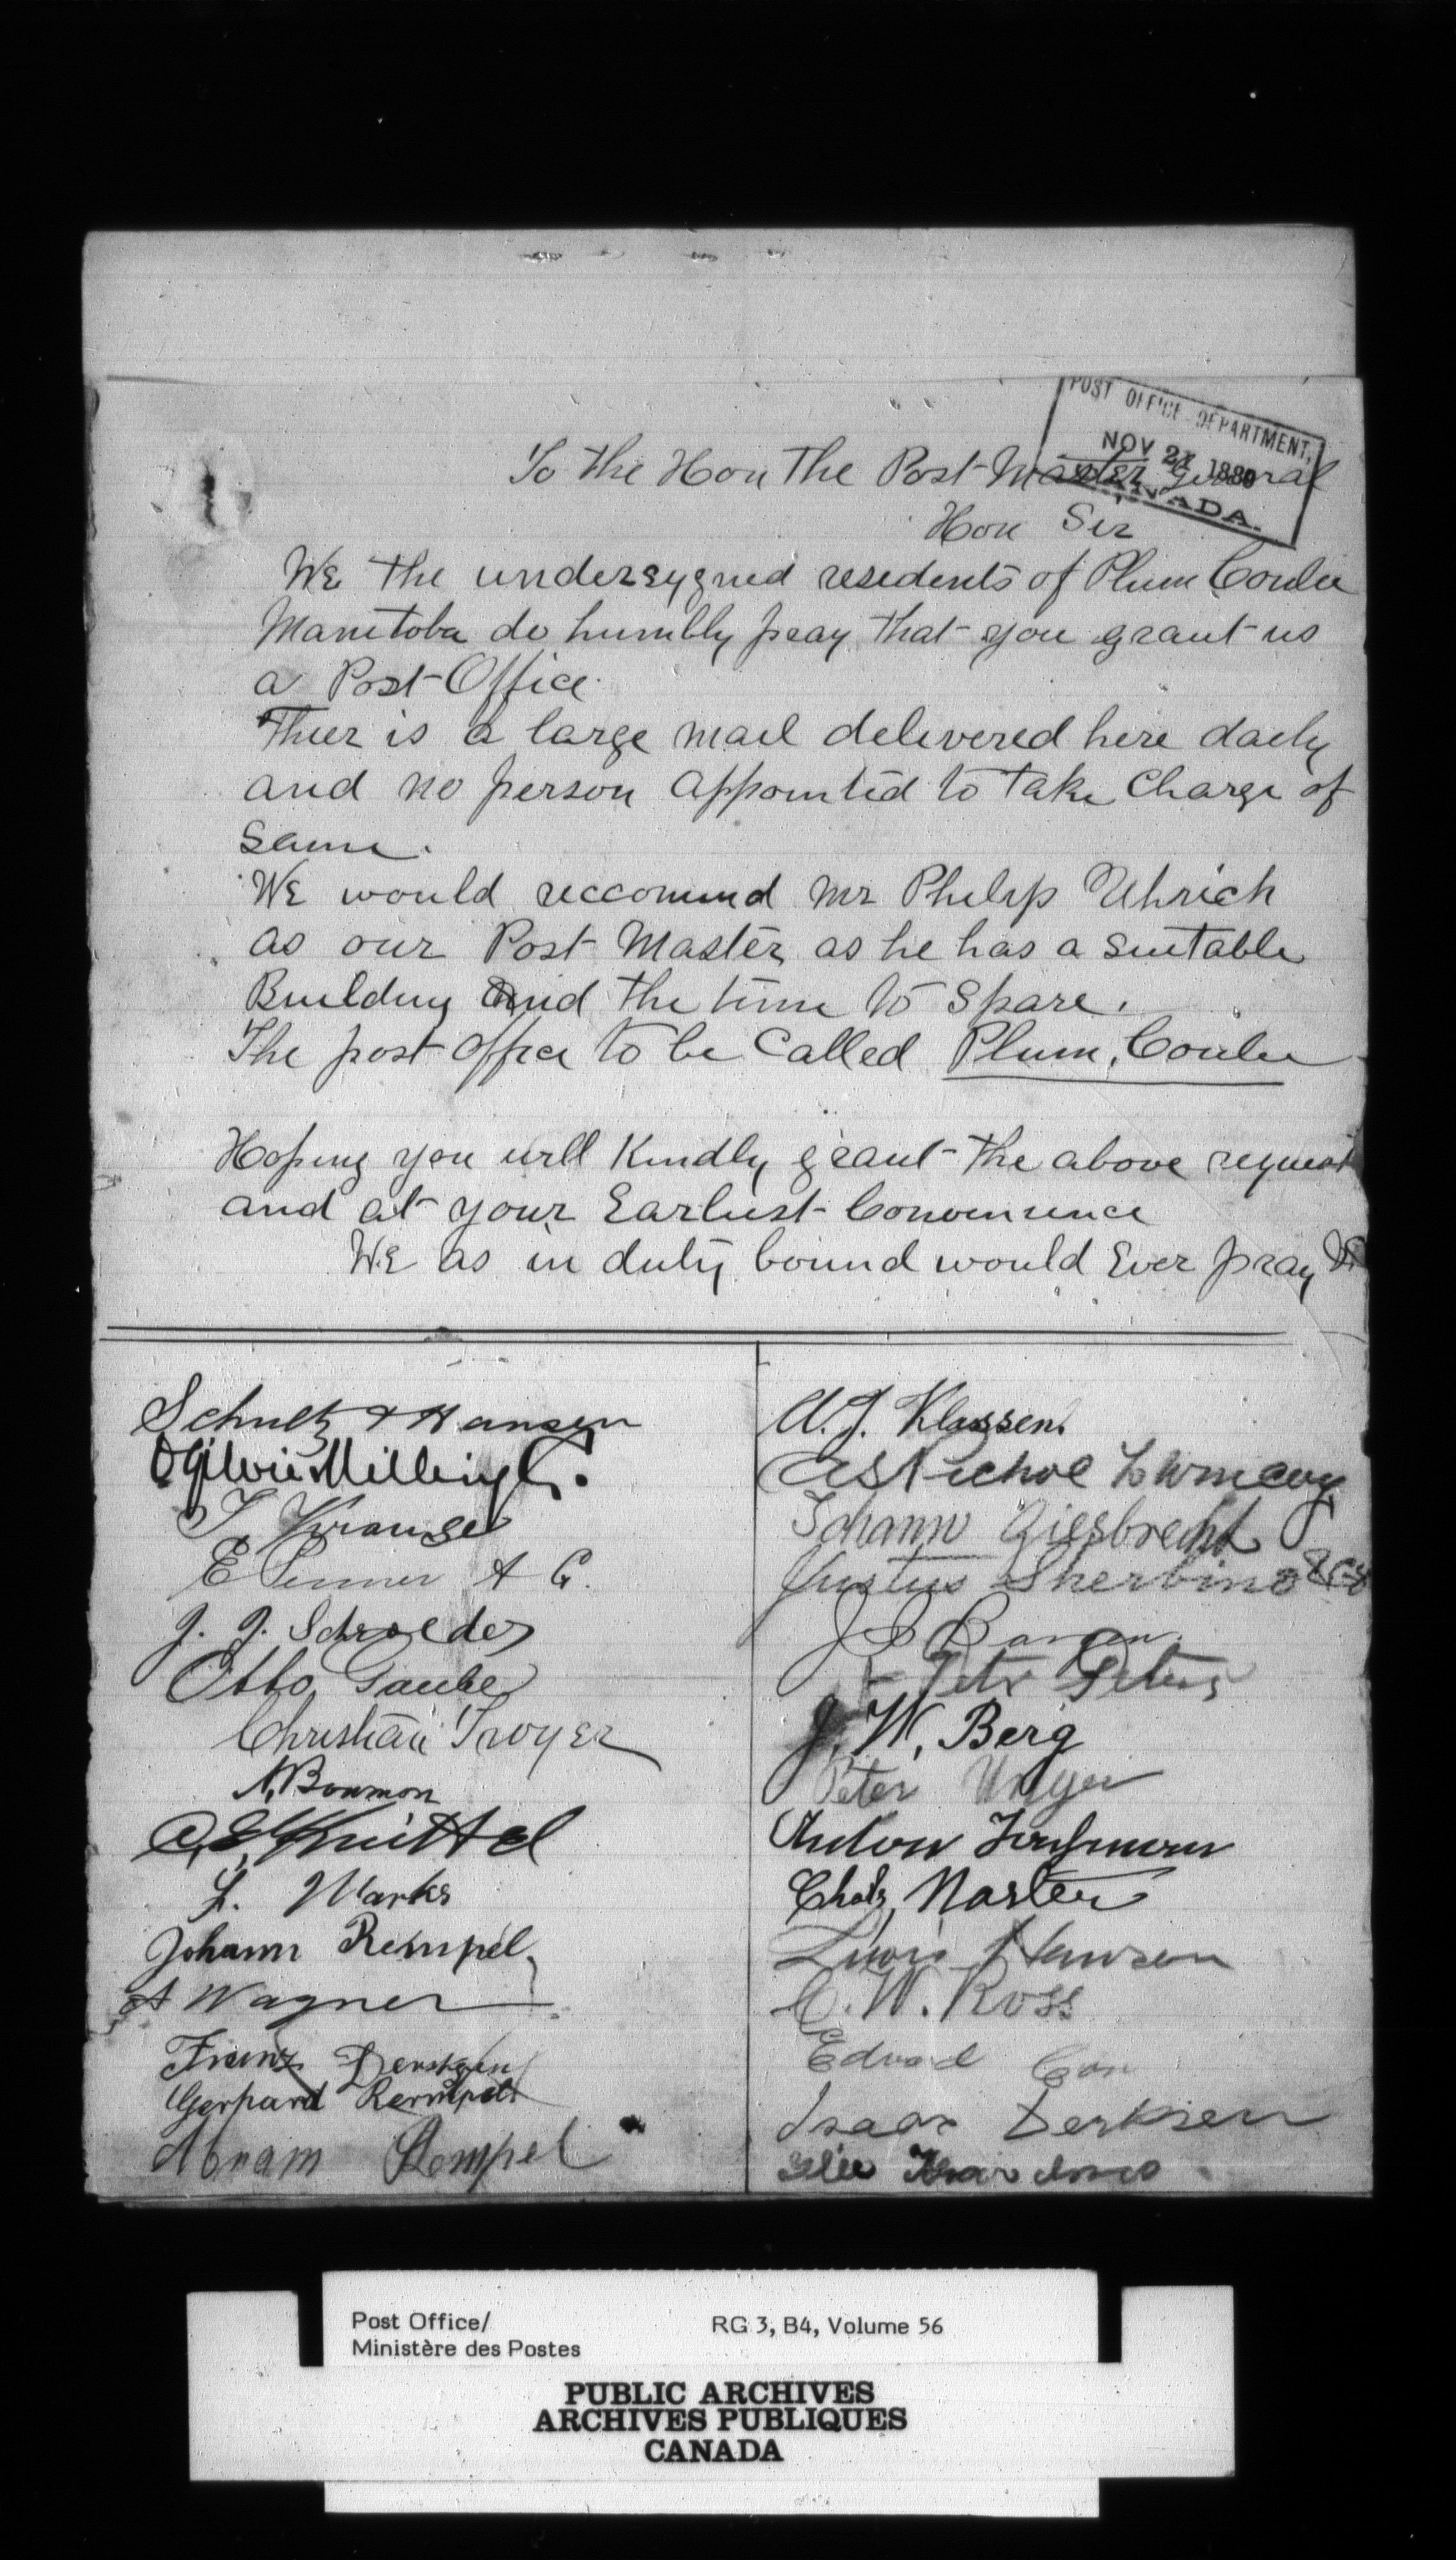 POST OFFICE DEPARTMENT,
NOV 21 1889
CANADA.
To the Hon The Post Master General
Hon Sir
We the undersygned residents of Plum Coulee
Manitoba do humbly pray that you grant us
a Post Office.
Theer is a large mail delivered here daily
and no person appointed to take Charge of
Same.
We would reccomend Mr Philip Uhrich
as our Post Master as he has a suitable
Building and the time to spare.
The post office to be Called Plum, Coulee
Hoping you will Kindly grant the above request
and at your Earliest Convenience
We as in duty bound would Ever pray &c
Schultz & Hansen
Ogilvie Milling Co.
T. Krause
E Penner & C.
J. J. Schroeder
Otto Gaube
Christian Troyer
N. Bowman
C. E. Knittel
L. Marks
Johann Rempel
A Wagner
Franz Derksen
Gerhard Rempel
Abram Rempel
A. J. Klassen
Johann Giesbrecht
Justus Sherbino
Peter Peters
J. W. Berg
Peter Unger
Anton
Chas, Naster
Lewis Hansen
C. W. Ross
Isaac Derksen
Post Office/
Ministère des Postes
RG 3, B4, Volume 56
PUBLIC ARCHIVES
ARCHIVES PUBLIQUES
CANADA